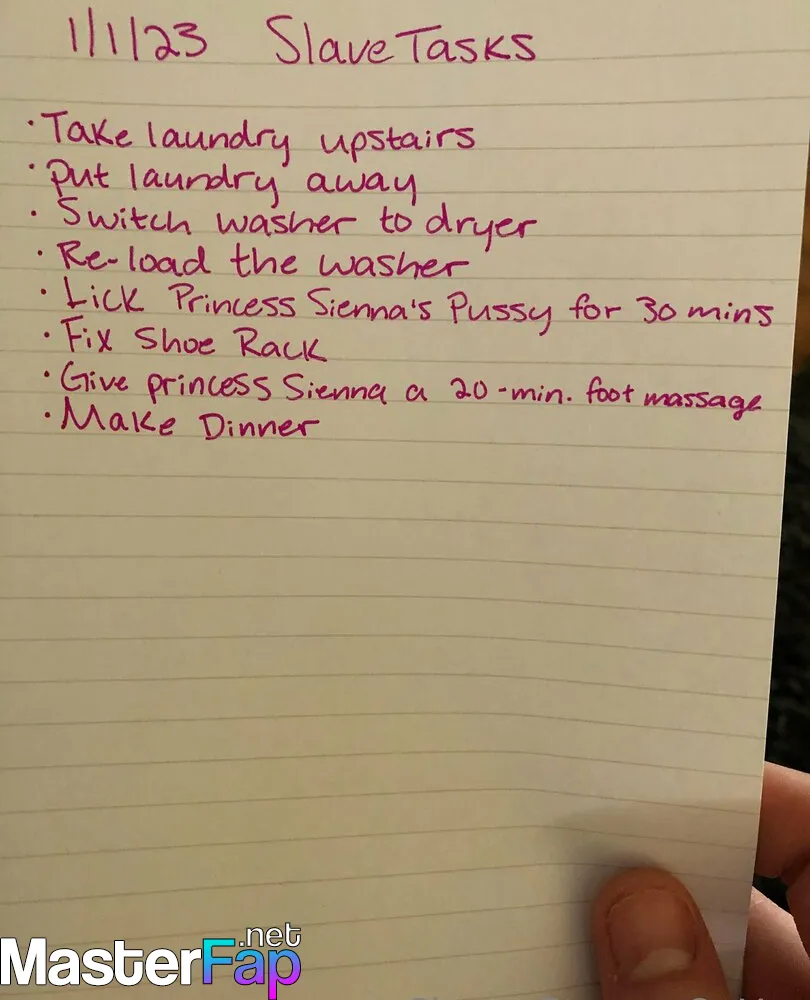 1/1/23 Slave Tasks
· Take laundry upstairs
· Put laundry away
· Switch washer to dryer
· Re-load the washer
· Lick Princess Sienna's Pussy for 30 mins
· Fix Shoe Rack
· Give princess Sienna a 20-min. foot massage
· Make Dinner
MasterFap.net